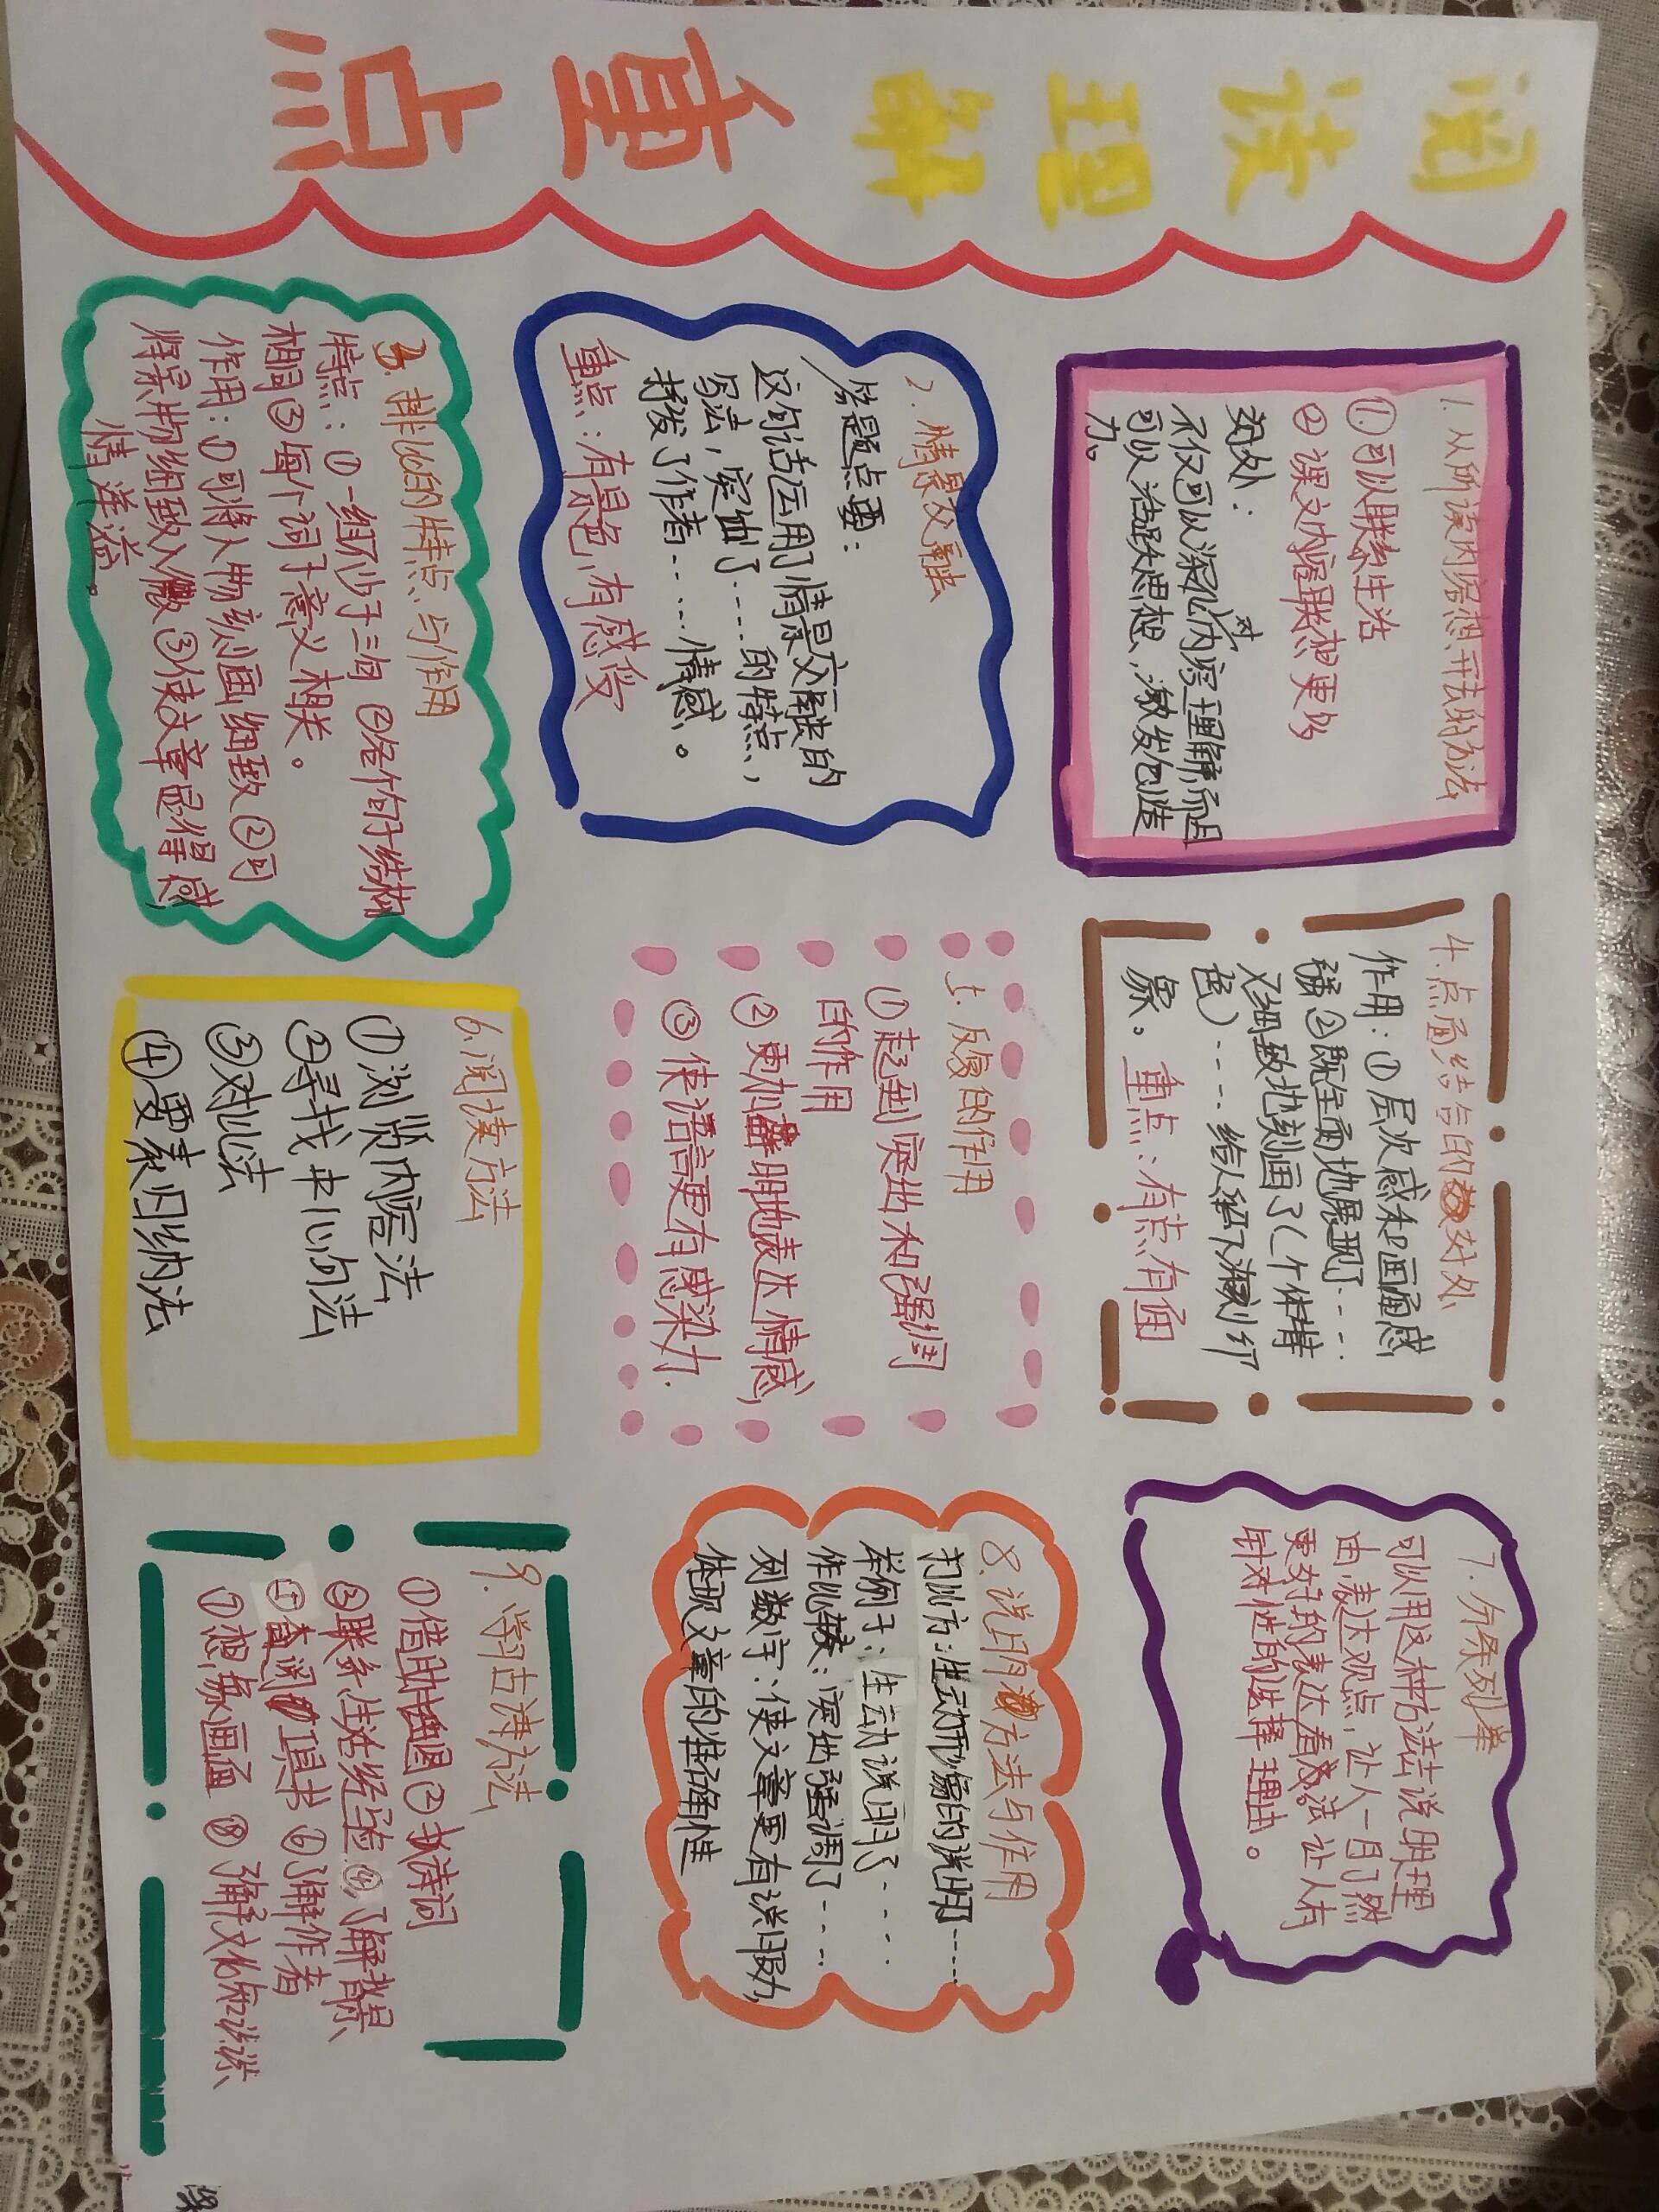 阅读理解
重点
1.从所读内容想开去的方法
①可以联系生活
②课文内容联想更多
好处：
不仅可以深化对内容理解而且
可以活跃思想，激发创造
力。
2.情景交融
答题点要：
这句话运用了情景交融的
写法，突出了……的特点，
抒发了作者……情感。
重点：有景色，有感受
3.排比的特点与作用
特点：①一组不少于三句②各句句子结构
相同③每个词于意义相关。
作用：①可将人物刻画细致②可
将景物细致入微③使文章显得感
情洋溢。
4.点面结合的好处
作用：①层次感和画面感
强②既全面地展现了……
又细致地刻画了（个体精
色）……给人留下深刻印
象。重点：有点有面
5.反复的作用
①起到突出和强调
的作用
②更加鲜明地表达情感，
③使语言更有感染力.
6.阅读方法
①浏览内容法
②寻找中心句法
③对比法
④要素归纳法
7.分条列举
可以用这种方法去说明理
由，表达观点，让人一目了然
更好的表达看法让人有
针对性的选择理由。
8.说明方法与作用
打比方:生动形象的说明……
举例子：生动说明了……
作比较：突出强调了……
列数字：使文章更有说服力，
体现文章的准确性
9.学古诗方法
①借助插图②抓诗词
③联系生活经验④了解背景
⑤查阅工具书⑥了解作者
⑦想象画面⑧了解文化知识